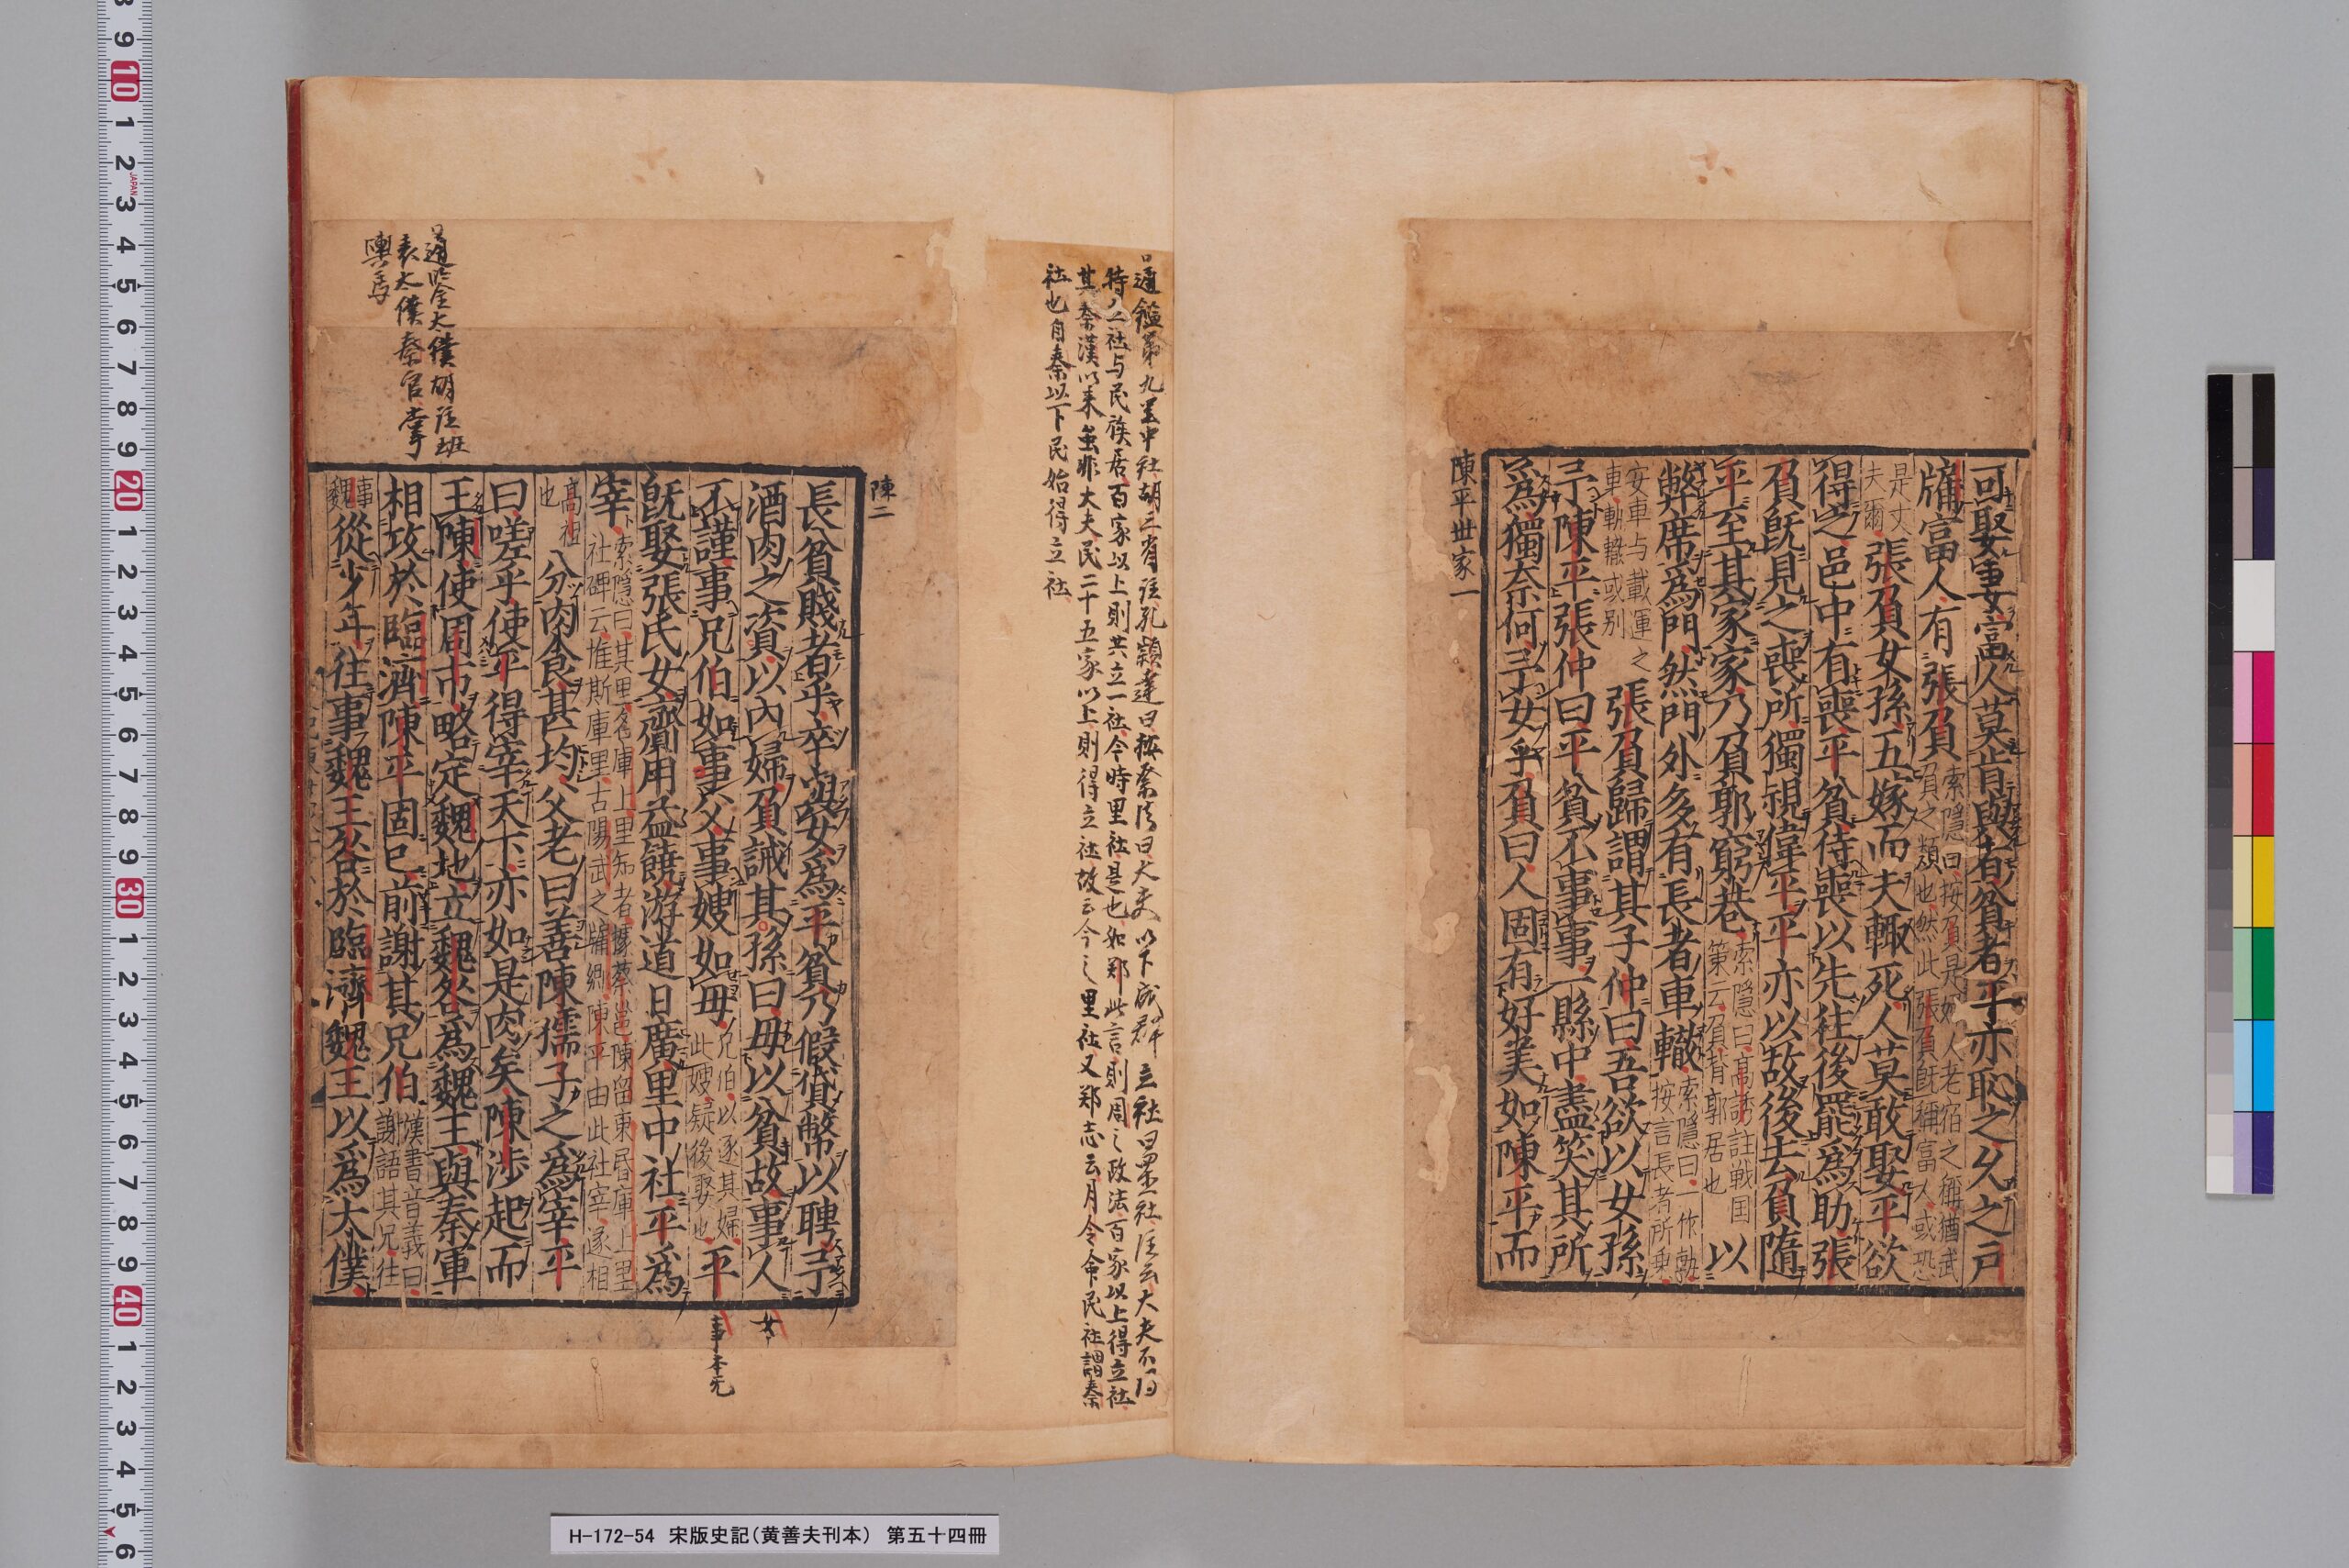 可娶妻富人莫肯與者貧者平亦恥之久之戶
牖富人有張負
索隱曰按負是婦人老宿之稱猶武
負之類也然此張負既稱富人或恐
是丈
夫爾
張負女孫五嫁而夫輒死人莫敢娶平欲
得之邑中有喪平貧侍喪以先往後罷爲助張
負既見之喪所獨視偉平平亦以故後去負隨
平至其家家乃負郭窮巷
索隱曰高誘註戦国
策云負背郭居也
以
弊席爲門然門外多有長者車轍
索隱曰一作軌
按言長者所乗
安車与載運之
車軌轍或别
張負歸謂其子仲曰吾欲以女孫
予陳平張仲曰平貧不事事一縣中盡笑其所
爲獨柰何予女乎負曰人固有好美如陳平而
陳平丗家一
通鑑第九里中社胡三省註孔穎達曰按祭法曰大夫以下成群立社曰置社注云大夫不得
特立社与民族居百家以上則共立一社今時里社是也如郑此言則周之政法百家以上得立社
其秦漢以来虽非大夫民二十五家以上則得立社故云今之里社又郑志云月令命民社謂秦
社也自秦以下民始得立社
陳二
長貧賤者乎卒與女爲平貧乃假貸幣以聘予
酒肉之資以内婦負誡其孫曰毋以貧故事人
不謹事兄伯如事父事嫂如毋
兄伯以逐其婦
此嫂疑後娶也
平
既娶張氏女齎用益饒游道日廣里中社平爲
宰
索隱曰其里名庫上里知者據蔡邕陳留東昏庫上里
社碑云惟斯庫里古陽武之牖鄉陳平由此社宰遂相
高祖
也
分肉食甚均父老曰善陳孺子之爲宰平
曰嗟乎使平得宰天下亦如是肉矣陳涉起而
王陳使周市略定魏地立魏咎爲魏王與秦軍
相攻於臨濟陳平固已前謝其兄伯
漢書音義曰
謝語其兄往
事
魏
從少年往事魏王咎於臨濟魏王以爲太僕
女
事本无
通鑑太僕胡註班
表太僕秦官掌
輿馬
H-172-54 宋版史記(黄善夫刊本) 第五十四冊